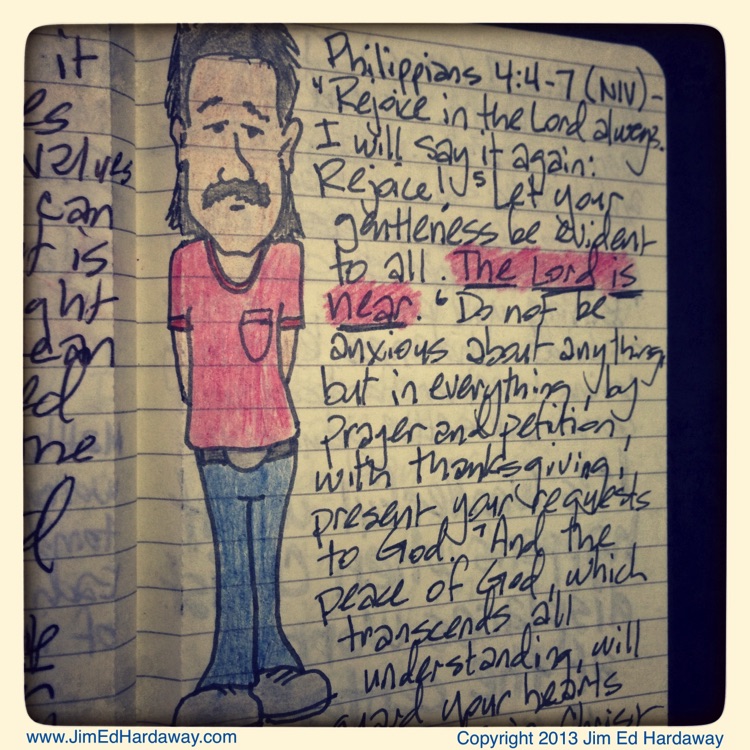 it
can
is
ght
can
ed
ne
Philippians 4:4-7 (NIV)-
"Rejoice in the Lord always.
I will say it again:
Rejoice! 5 Let your
gentleness be evident
to all. The Lord is
near. 6 Do not be
anxious about anything,
but in everything, by
prayer and petition,
with thanksgiving,
present your requests
to God. 7 And the
peace of God, which
transcends all
understanding, will
guard your hearts
Christ
www.JimEdHardaway.com
Copyright 2013 Jim Ed Hardaway